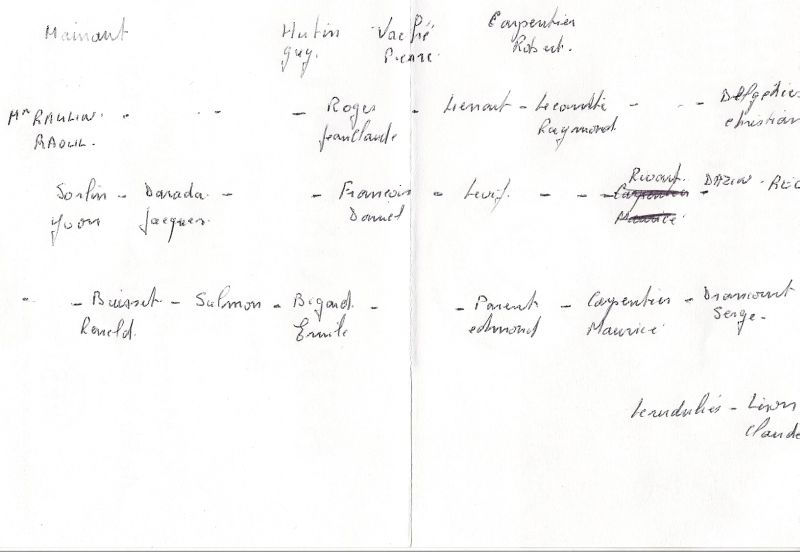 Mainant Hutin Vaché Carpentier
Guy. Pierre Robert.
Mr RAULIN. - - - Roger - Lienart - Lecomte - - -
RAOUL. Jean Claude Raymond. christian
Sorlin - Darada - - François - Levif. - - - Rivart. - DAZIN -
Yvon Jacques Daniel Carpentier
Maurice
- - Buisset - Salmon - Bigand. - - Parent - Carpentier - Dramcourt
Reneld. Emile edmond Maurice Serge -
- Liron
Claude